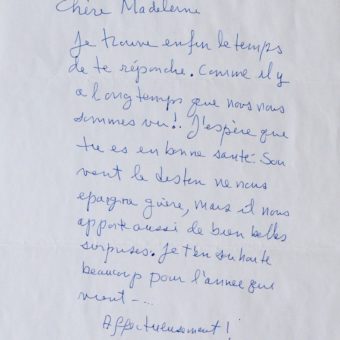 Chère Madeleine
Je trouve enfin le temps
de te répondre. Comme il y
a longtemps que nous nous
sommes vu!! J'espère que
tu es en bonne santé. Sou
vent le destin ne nous
épargne guère, mais il nous
apporte aussi de bien belles
surprises. Je t'en souhaite
beaucoup pour l'année qui
vient -...
Affectueusement!